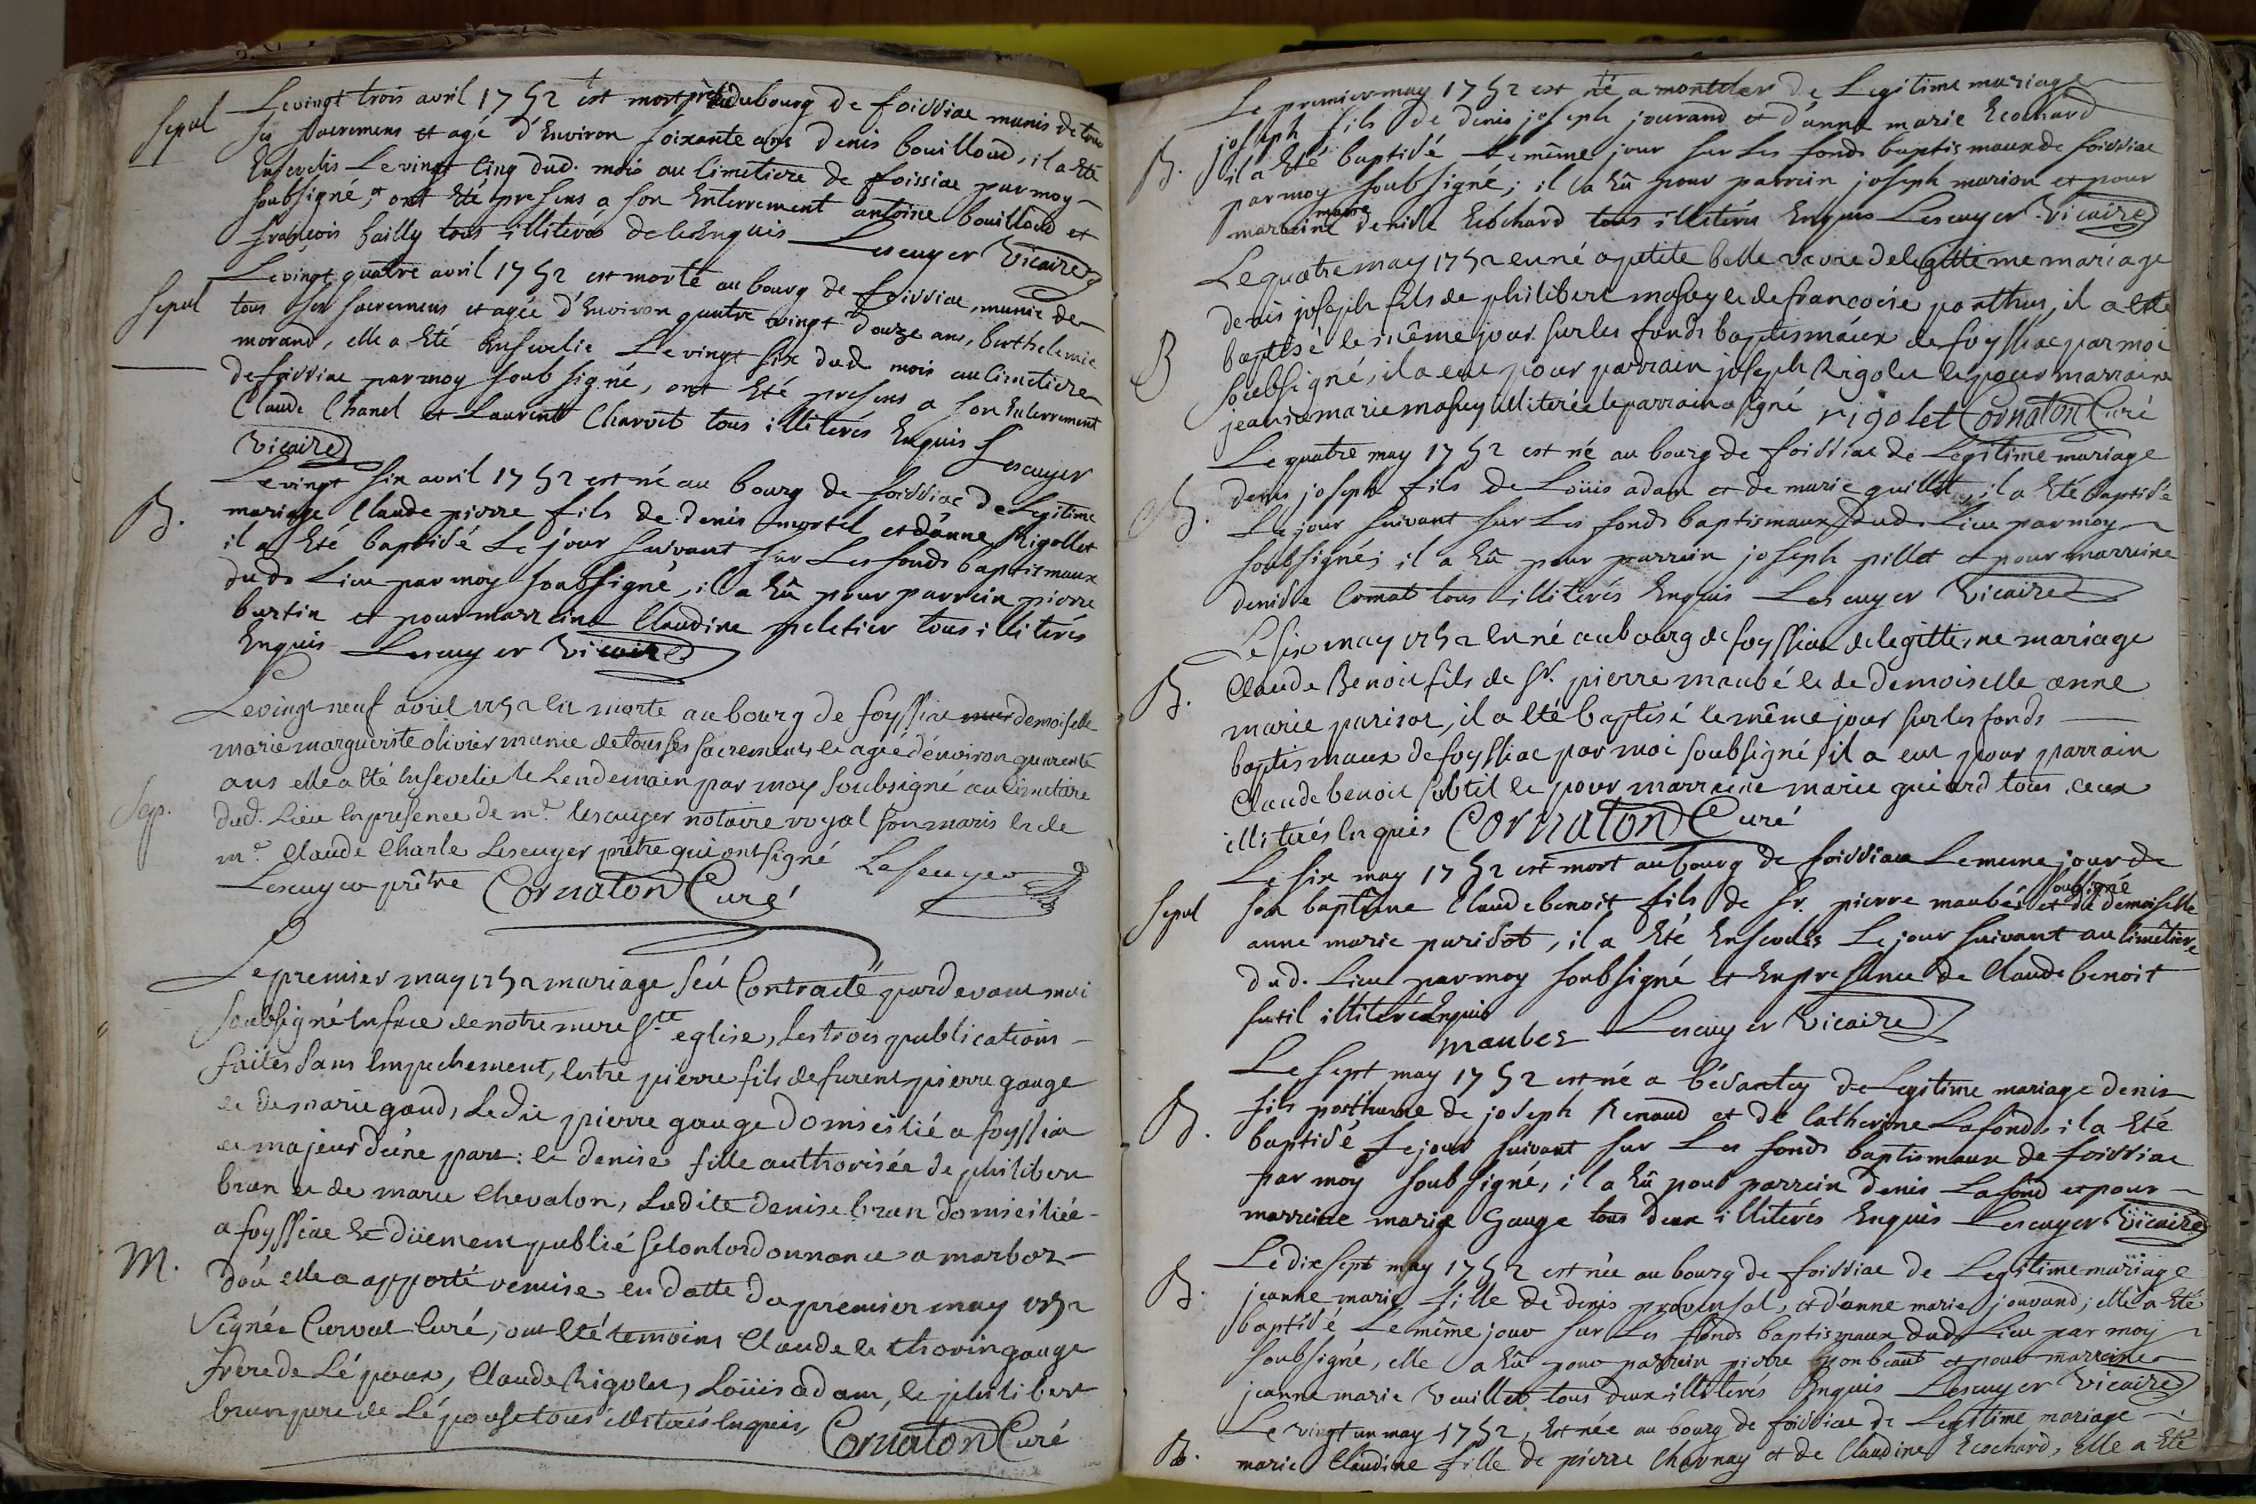 Sepul
Le vingt trois avril 1752 est mort près du bourg de foissiac munis de tous
ses sacremens et agé d'Environ soixante ans denis bouilloud, il a Eté
Ensevelis Le vingt Cinq dud. mois au Cimetiere de foissiac par moy
soubsigné, et ont Eté presens a son Enterrement antoine bouilloud et
françois bailly tous illiterés de ce Enquis Lescuyer Vicaire
Sepul
Le vingt quatre avril 1752 est morte au bourg de foissiac, munie de
tous ses sacremens et agée d'Environ quatre vingt douze ans, Berthelemie
morand, elle a Eté Ensevelie Le vingt six dud mois au Cimetiere
de foissiac par moy soubsigné, ont Eté presens a son Enterrement
Claude Chanel et Laurent Charvet tous illiterés Enquis Lescuyer
Vicaire
B.
Le vingt six avril 1752 est né au bourg de foissiac de Legitime
mariage Claude pierre fils de denis mortel et d'anne Rigollet
il a Eté baptisé Le jour suivant sur Les fonds baptismaux
dud. Lieu par moy soubsigné, il a Eû pour parrein pierre
bertin et pour marreine Claudine peletier tous illiterés
Enquis Lescuyer Vicaire
Sep.
Le vingt neuf avril 1752 est morte au bourg de foyssiac demoiselle
marie marguerite olivier munie de tous ses sacrements et agée d'environ quarente
ans elle a été Ensevelie le Lendemain par moy soubsigné au Cimetière
dud. Lieu En presence de me. lescuyer notaire royal son maris et de
me. Claude Charle Lescuyer prêtre qui ont signé Lescuyer
Lescuyer prêtre Cornaton Curé
M.
Le premier may 1752 mariage s'eu Contracté pardevant moi
soubsigné En face de notre mere Ste eglise, Les trois publications
faites sans Empechement, Entre pierre fils de furent pierre gauge
et de marie gaud, Le dit pierre gauge domicilié a foyssia
et majeur d'une part: et denise fille authorisée de philibert
brun et de marie Chevalon, Ladite denise brun domiciliée
a foyssiac Et duement publié selon lordonnance a marboz
d'où elle a apporté remise en datte du premier may 1752
Signée Curval Curé, ont été temoins Claude et thorin gauge
frere de Lépoux, Claude Rigolet, Loüis adam, et philibert
brun pere de Lépouse tous illiterés Enquis Cornaton Curé
B.
Le premier may 1752 est né a de Legitime mariage
joseph fils de denis joseph jouvand et d'anne marie Ecochard
il a Eté baptisé Le même jour sur Les fonds baptismaux de foissiac
par moy soubsigné; il a Eû pour parrein joseph marion et pour
marreine denise Ecochard tous illiterés Enquis Lescuyer Vicaire
B
Le quatre may 1752 est né a petite belle vavre de legittime mariage
denis joseph fils de philibert masuy et de francoise ponthus, il a été
baptisé le même jour sur les fonds baptismaux de foyssiac par moi
soubsigné, il a eut pour parrain joseph Rigolet et pour marraine
jeanne marie masuy illiterée le parrain a signé rigolet Cornaton Curé
B.
Le quatre may 1752 est né au bourg de foissiac de Legitime mariage
denis joseph fils de Loüis adam et de marie guillot, il a Eté baptisé
Le jour suivant sur Les fonds baptismaux dud. Lieu par moy
soubsigné; il a Eû pour parrein joseph pillet et pour marreine
denisse Comat tous illiterés Enquis Lescuyer Vicaire
B.
Le six may 1752 est né au bourg de foyssiac de legittime mariage
Claude Benoit fils de Sr. pierre maubé et de demoiselle anne
marie parisot, il a été baptisé le même jour sur les fonds
baptismaux de foyssiac par moi soubsigné, il a eut pour parrain
Claude benoit subtil et pour marraine marie guiard tous deux
illiterés Enquis Cornaton Curé
Sepul
Le six may 1752 est mort au bourg de foissiac Le meme jour de
son baptême Claude benoit fils de Sr. pierre maubés soubsigné et de demoiselle
anne marie parisot, il a Eté Ensevelis Le jour suivant au Cimêtiere
dud. Lieu par moy soubsigné et En presence de Claude benoit
sutil illiteré Enquis
maubez Lescuyer Vicaire
B.
Le sept may 1752 est né a bésantey de Legitime mariage denis
fils posthume de joseph Renaud et de Catherine Lafond, il a Eté
baptisé Le jour suivant sur Les fonds baptismaux de foissiac
par moy soubsigné, il a Eû pour parrein denis Lafond et pour
marreine marie gauge tous deux illiterés Enquis Lescuyer Vicaire
B.
Le dix sept may 1752 est née au bourg de foissiac de Legitime mariage
jeanne marie fille de denis provensal, et d'anne marie jouvand; elle a Eté
baptisé Le même jour sur Les fonds baptismaux dud. Lieu par moy
soubsigné, elle a Eû pour parrein pierre et pour marreine
jeanne marie Veuillet tous deux illiterés Enquis Lescuyer Vicaire
B.
Le vingt un may 1752, Est née au bourg de foissiac de Legitime mariage
marie Claudine fille de pierre Charnay et de Claudine Ecochard, Elle a Eté